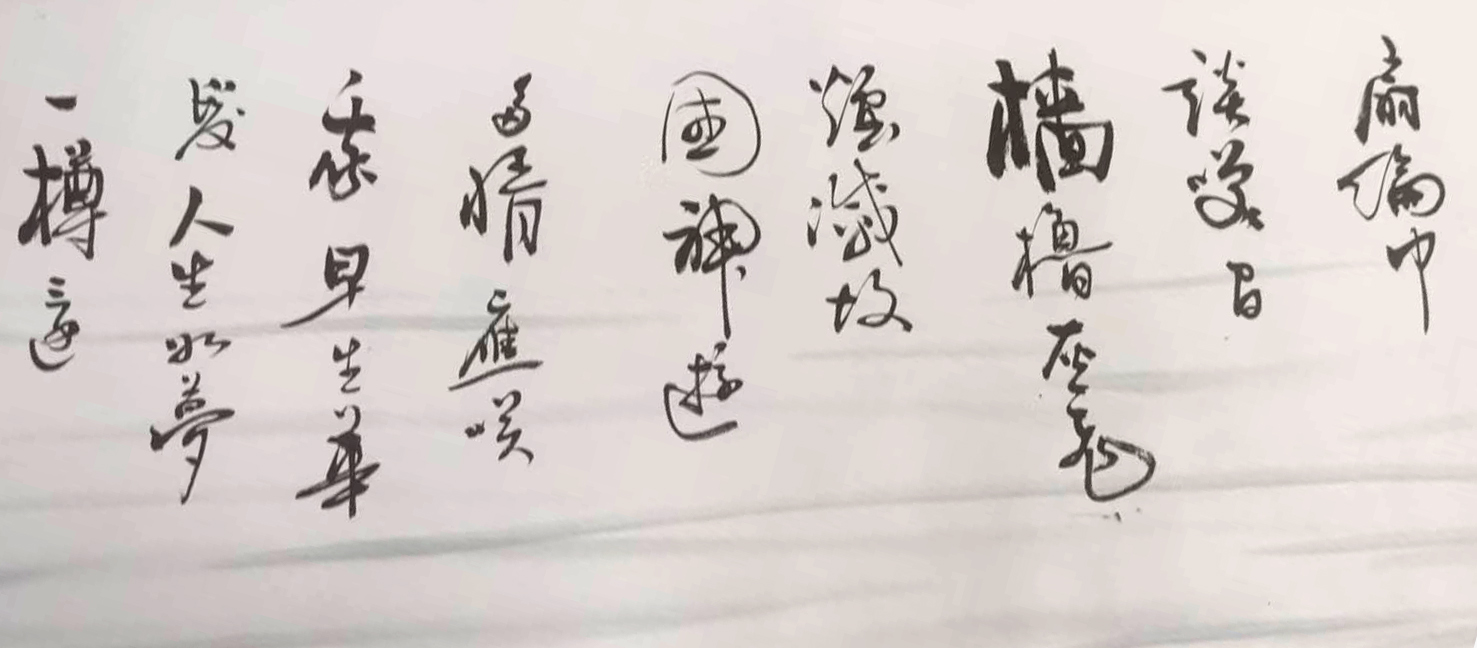 扇綸巾
談笑間
檣櫓灰飛
煙滅故
國神遊
多情應咲
我早生華
髮人生如夢
一樽還